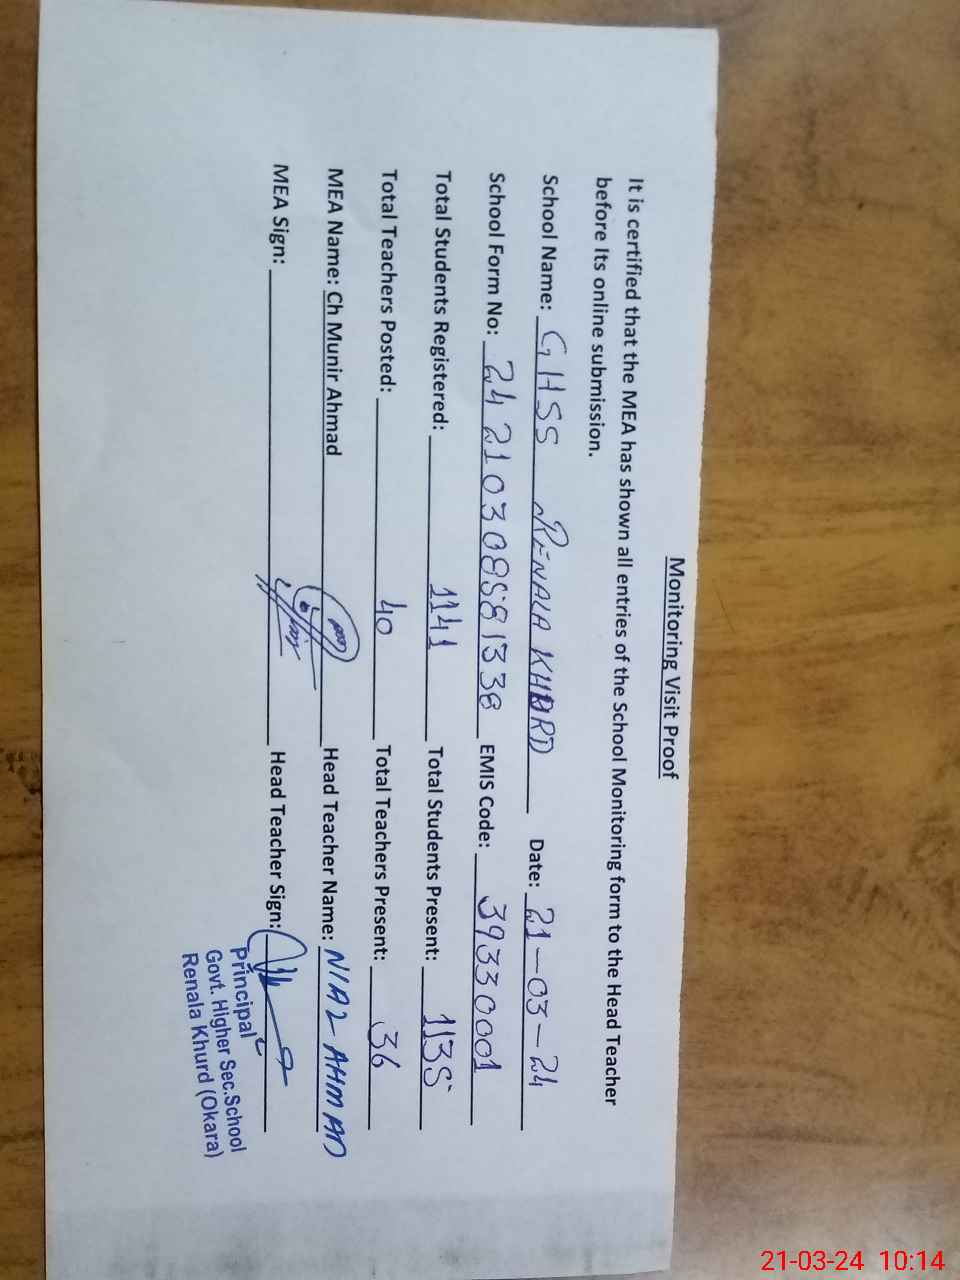 Monitoring Visit Proof
It is certified that the MEA has shown all entries of the School Monitoring form to the Head Teacher
before Its online submission.
School Name: GHSS RENALA KHURD Date: 21-03-24
School Form No: 24210308581338 EMIS Code: 39330001
Total Students Registered: 1141 Total Students Present: 1135
Total Teachers Posted: 40 Total Teachers Present: 36
MEA Name: Ch Munir Ahmad Head Teacher Name: NIAZ AHMAD
MEA Sign: Head Teacher Sign:
Principal
Govt. Higher Sec.School
Renala Khurd (Okara)
21-03-24 10:14